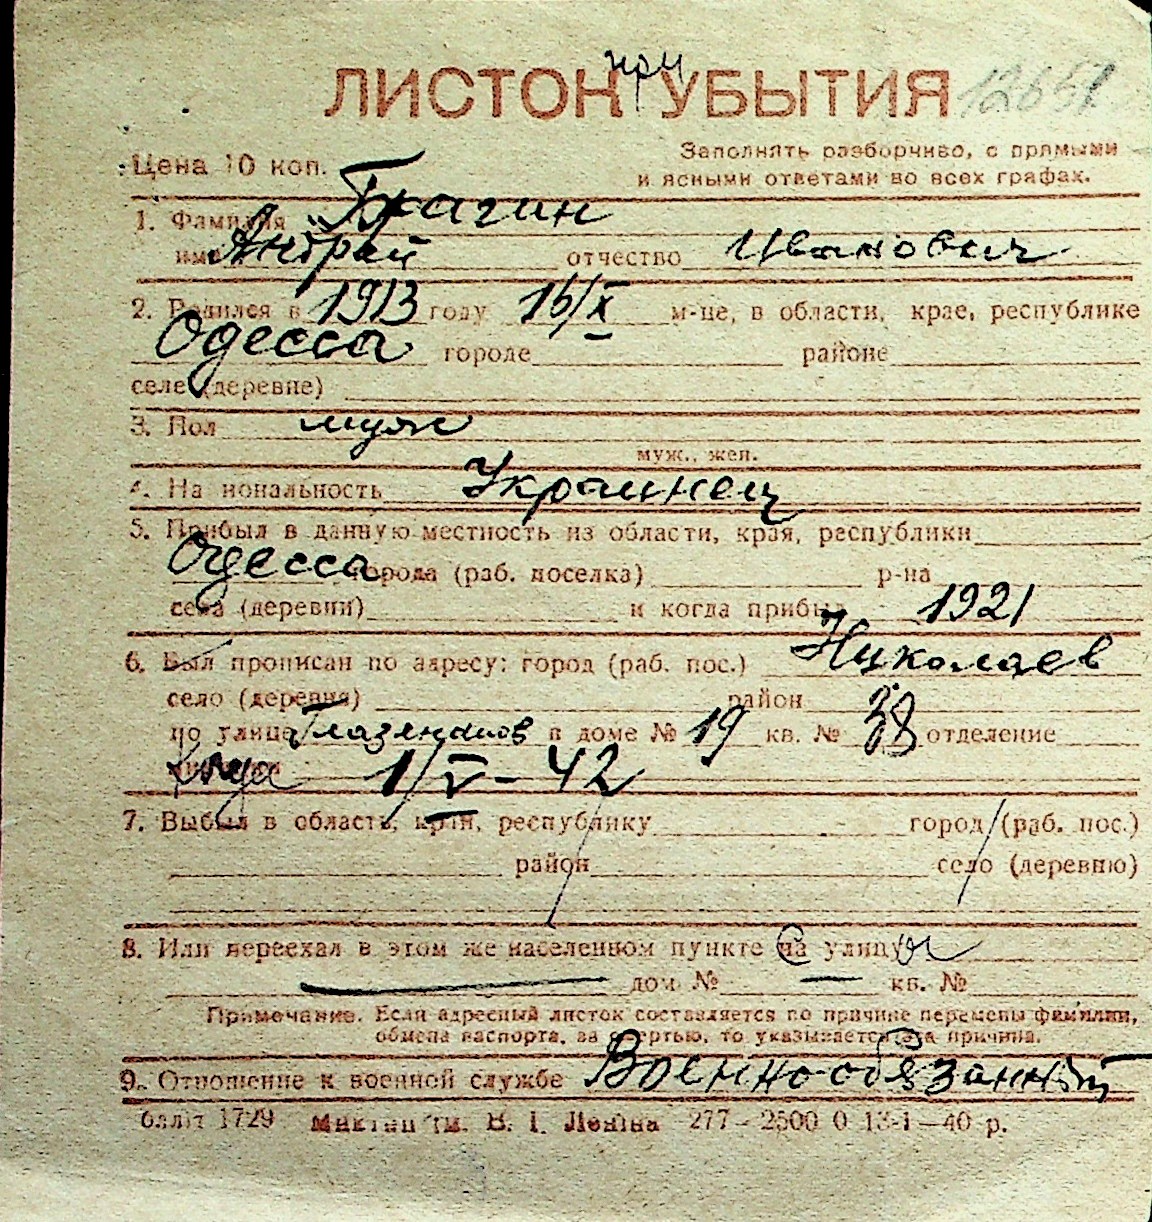 при
ЛИСТОК УБЫТИЯ 12651
Цена 10 коп.
Заполнять разборчиво, с прямыми
и ясными ответами во всех графах.
1. Фамилия Брагин
имя Андрей отчество Иванович
2. Родился в 1913 году 16/X м-це, в области, крае, республике
Одесса городе районе
селе (деревне)
3. Пол муж
муж., жен.
4. На иональность Украинец
5. Прибыл в данную местность из области, края, республики
Одесса города (раб. поселка) р-на
села (деревни) и когда прибыл 1921
6. Был прописан по адресу: город (раб. пос.) Николаев
село (деревня) район
по улице в доме № 19 кв. № 38 отделение
1/V - 42
7. Выбыл в область, край, республику город (раб. пос.)
район село (деревню)
8. Или переехал в этом же населенном пункте на улицу
дом № — кв. №
Примечание. Если адресный листок составляется по причине перемены фамилии,
обмена паспорта, за смертью, то указывается эта причина.
9. Отношение к военной службе Военнообязанный
1729 ім. В. І. Леніна 277 - 2500 0 13-1—40 р.